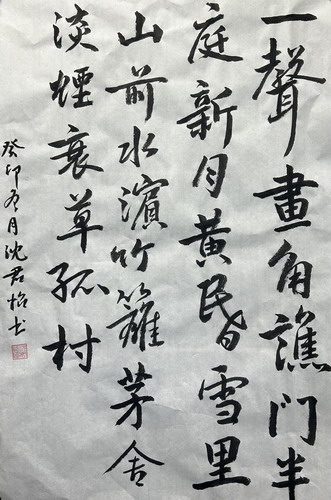 一聲畫角譙門半
庭新月黃昬雪里
山前水濱竹籬茅舍
淡煙衰草孤村
癸卯月沈君怡书